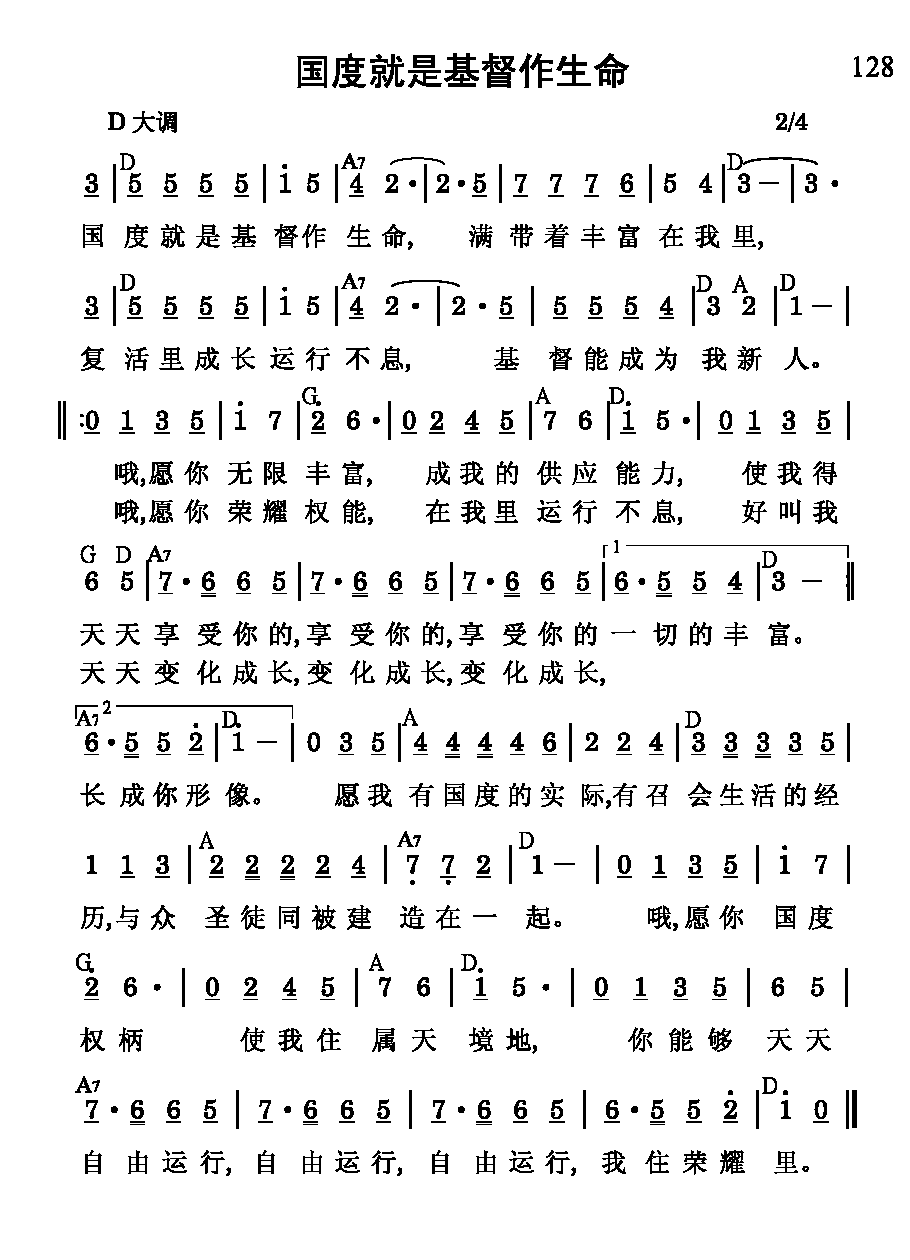 国度就是基督作生命 128
D 大调 2/4
D A7 D
3 | 5 5 5 5 | 1 5 | 4 2 · | 2 · 5 | 7 7 7 6 | 5 4 | 3 － | 3 ·
国 度 就 是 基 督作 生 命, 满 带 着 丰 富 在 我 里,
D A7 D A D
3 | 5 5 5 5 | 1 5 | 4 2 · | 2 · 5 | 5 5 5 4 | 3 2 | 1 － |
复 活 里 成 长 运 行 不 息, 基 督 能 成 为 我 新 人。
G A D
‖: 0 1 3 5 | 1 7 | 2 6 · | 0 2 4 5 | 7 6 | 1 5 · | 0 1 3 5 |
哦,愿 你 无 限 丰 富, 成 我 的 供 应 能 力, 使 我 得
哦,愿 你 荣 耀 权 能, 在 我 里 运 行 不 息, 好 叫 我
G D A7 1 D
6 5 | 7 · 6 6 5 | 7 · 6 6 5 | 7 · 6 6 5 | 6 · 5 5 4 | 3 － :‖
天 天 享 受 你 的,享 受 你 的,享 受 你 的 一 切 的 丰 富。
天 天 变 化 成 长,变 化 成 长,变 化 成 长,
A7 2 D A D
6 · 5 5 2 | 1 － | 0 3 5 | 4 4 4 4 6 | 2 2 4 | 3 3 3 3 5 |
长 成 你 形 像。 愿 我 有 国 度 的 实 际,有 召 会 生 活 的 经
A A7 D
1 1 3 | 2 2 2 2 4 | 7 7 2 | 1 － | 0 1 3 5 | 1 7 |
历,与 众 圣 徒 同 被 建 造 在 一 起。 哦,愿 你 国 度
G A D
2 6 · | 0 2 4 5 | 7 6 | 1 5 · | 0 1 3 5 | 6 5 |
权 柄 使 我 住 属 天 境 地, 你 能 够 天 天
A7 D
7 · 6 6 5 | 7 · 6 6 5 | 7 · 6 6 5 | 6 · 5 5 2 | 1 0 ‖
自 由 运 行, 自 由 运 行, 自 由 运 行, 我 住 荣 耀 里。